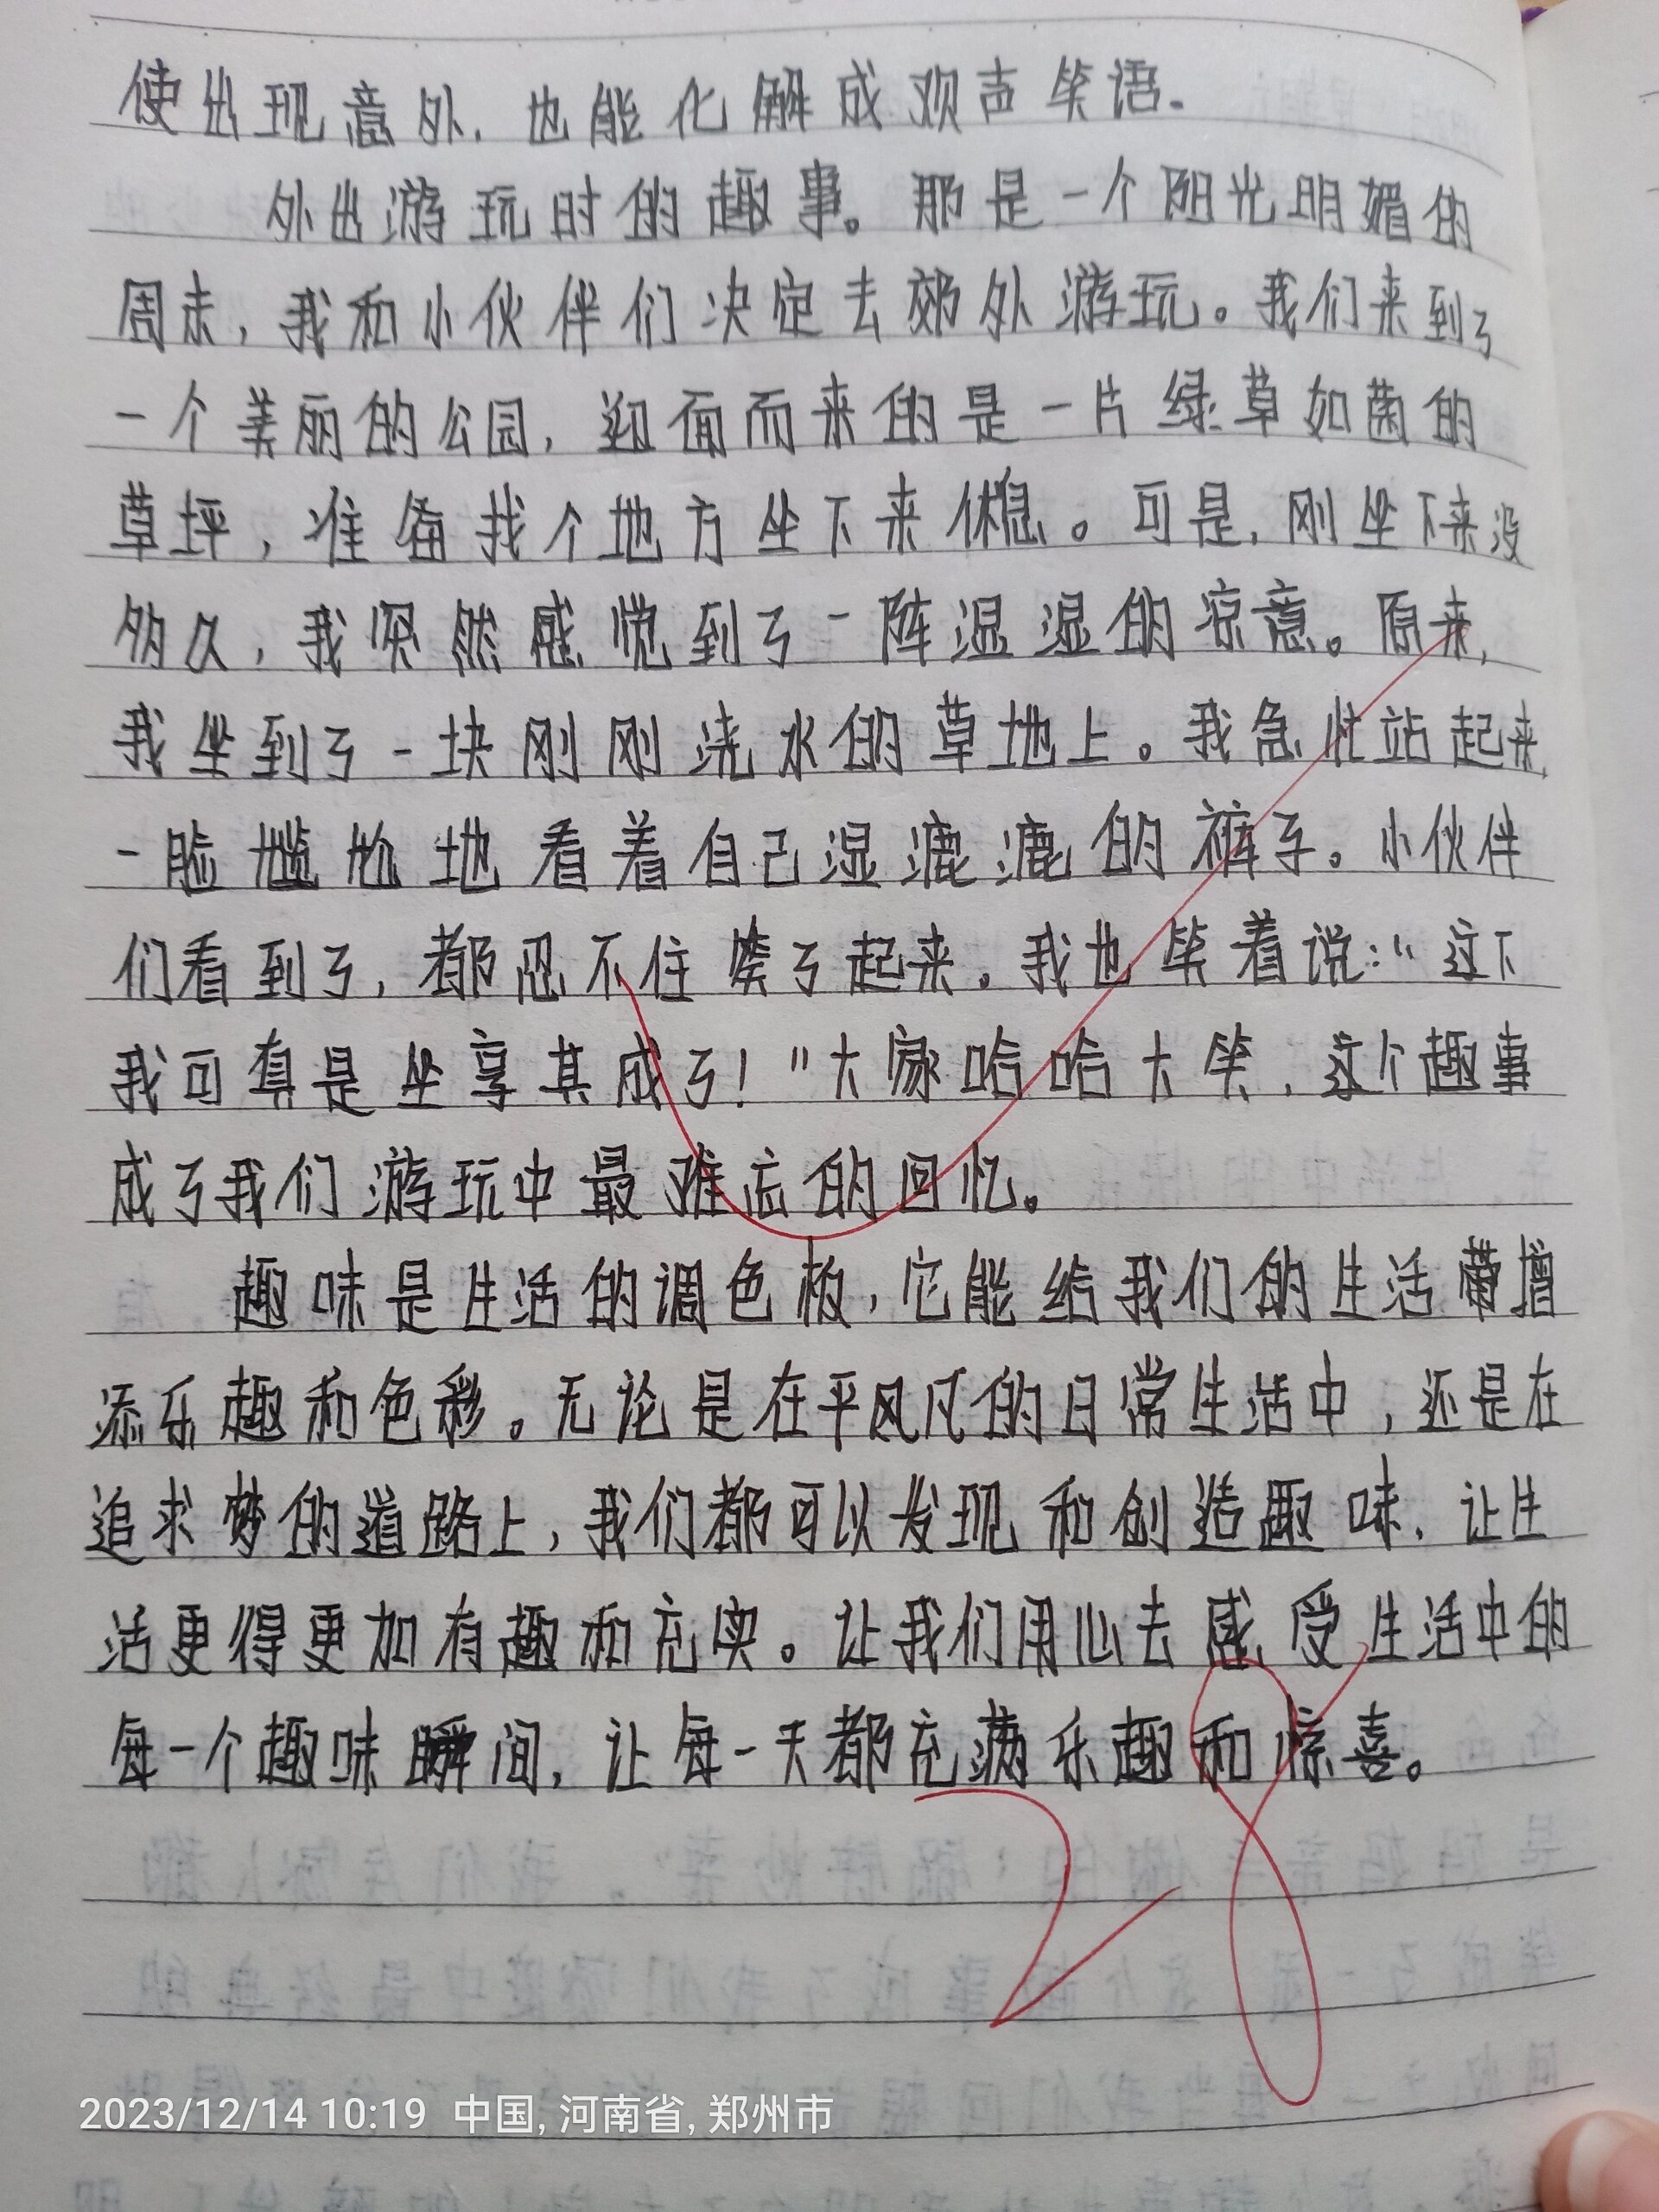 使出现意外，也能化解成欢声笑语。
外出游玩时的趣事。那是一个阳光明媚的
周末，我和小伙伴们决定去郊外游玩。我们来到了
一个美丽的公园，迎面而来的是一片绿草如茵的
草坪，准备找个地方坐下来休息。可是，刚坐下来没
多久，我突然感觉到了一阵湿湿的凉意。原来，
我坐到了一块刚刚浇水的草地上。我急忙站起来，
一脸尴尬地看着自己湿漉漉的裤子。小伙伴
们看到了，都忍不住笑了起来。我也笑着说：“这下
我可真是坐享其成了！”大家哈哈大笑，这个趣事
成了我们游玩中最难忘的回忆。
趣味是生活的调色板，它能给我们的生活增
添乐趣和色彩。无论是在平凡的日常生活中，还是在
追求梦的道路上，我们都可以发现和创造趣味，让生
活更得更加有趣和充实。让我们用心去感受生活中的
每一个趣味瞬间，让每一天都充满乐趣和惊喜。
28
2023/12/14 10:19 中国, 河南省, 郑州市